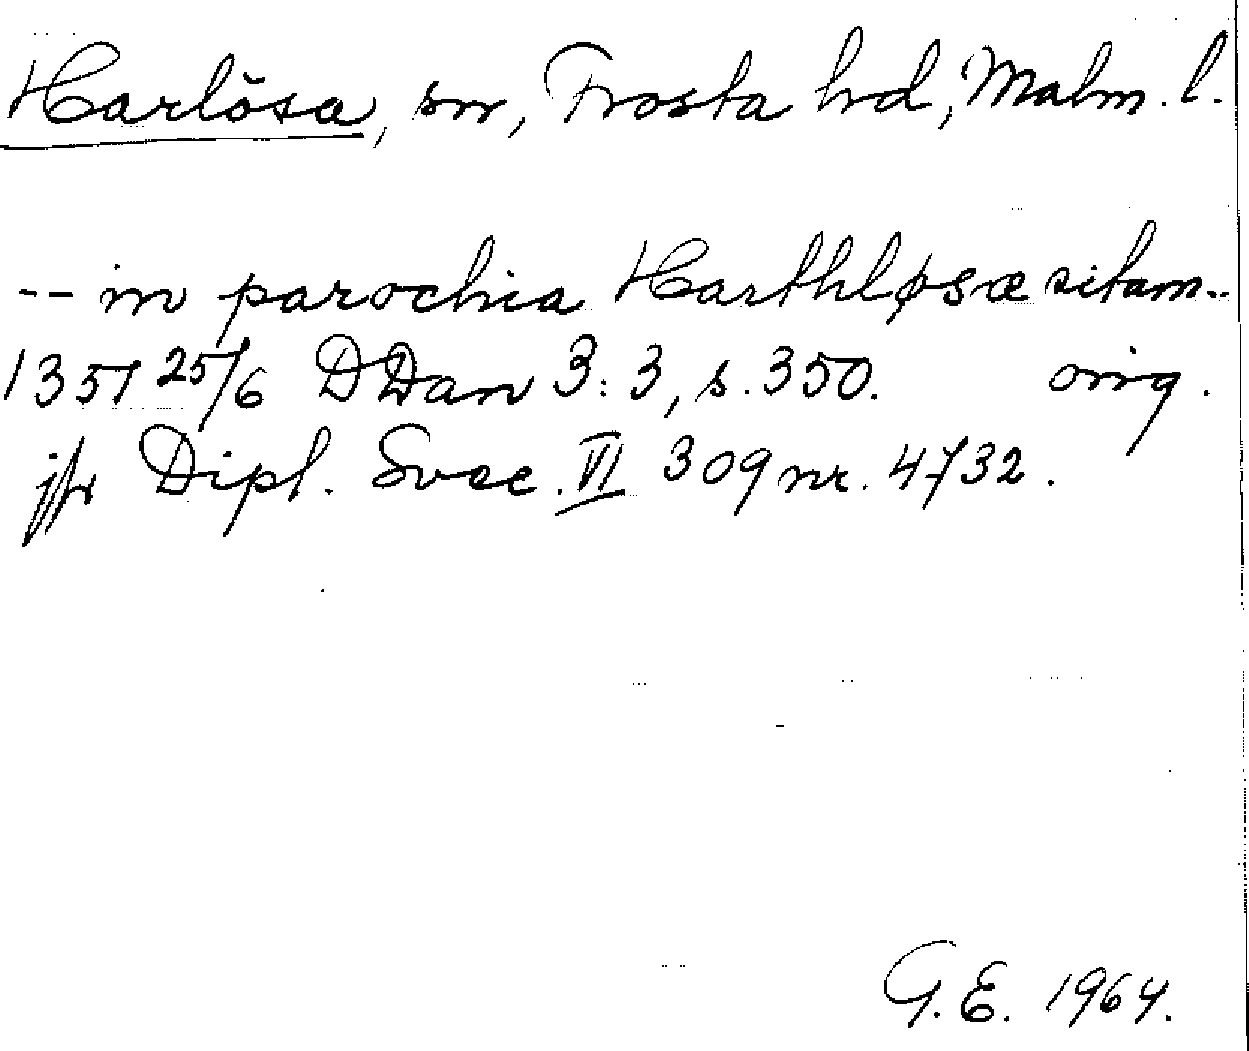 Harlösa, sn, Frosta hrd, Malm. l.
-- in parochia Harthløsæ sitam..
1351 25/6 DDan 3:3, s. 350. orig.
jfr Dipl. Svec. VI 309 nr. 4732.
G.E. 1964.